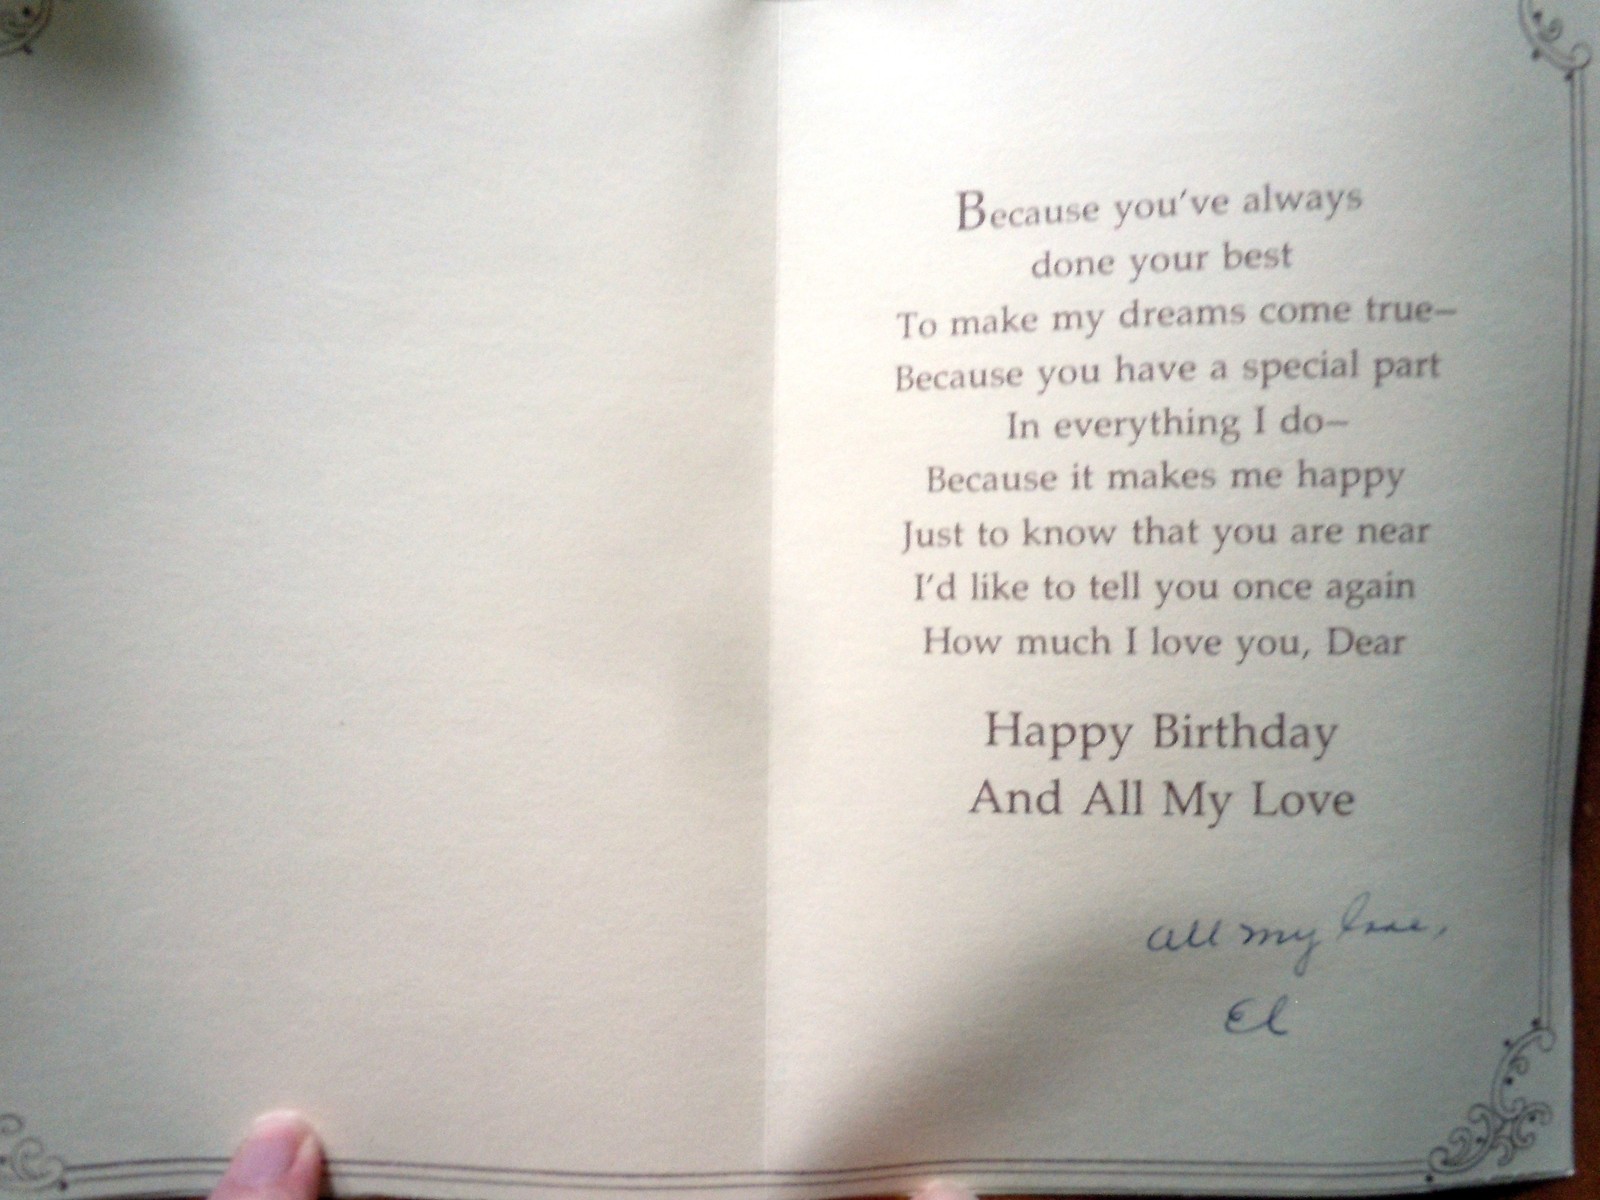 Because you've always
done your best
To make my dreams come true–
Because you have a special part
In everything I do–
Because it makes me happy
Just to know that you are near
I'd like to tell you once again
How much I love you, Dear
Happy Birthday
And All My Love
All my love,
El